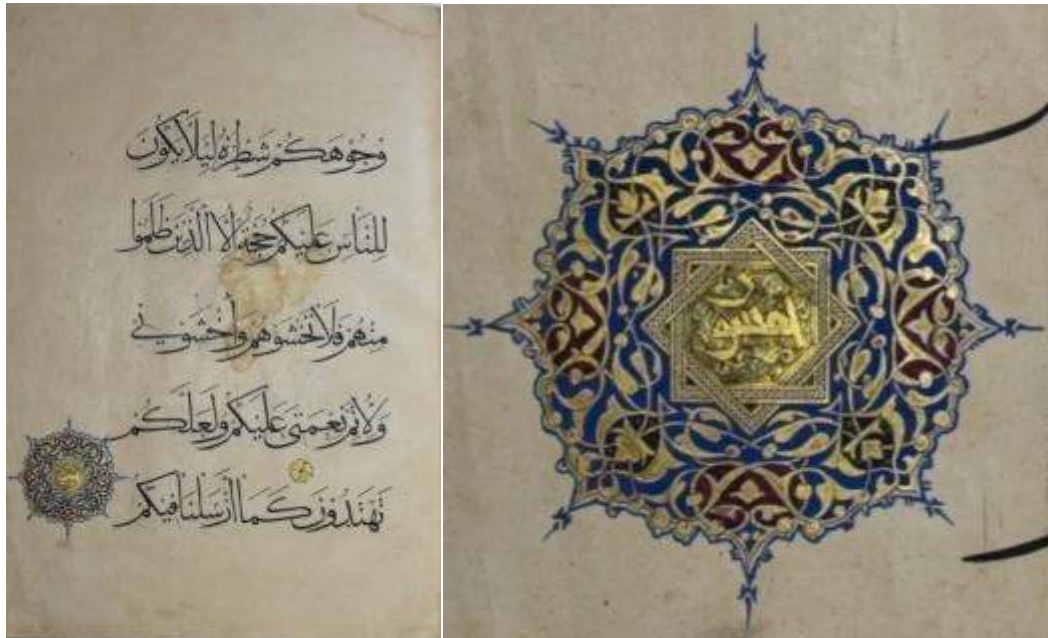 وُجُوهَكُمْ شَطْرَهُ لِيَلَّا يَكُونَ
لِلنَّاسِ عَلَيْكُمْ حُجَّةٌ إِلَّا الَّذِينَ ظَلَمُوا
مِنْهُمْ فَلَا تَخْشَوْهُمْ وَاخْشَوْنِي
وَلِأُتِمَّ نِعْمَتِي عَلَيْكُمْ وَلَعَلَّكُمْ
تَهْتَدُونَ كَمَا أَرْسَلْنَا فِيكُمْ